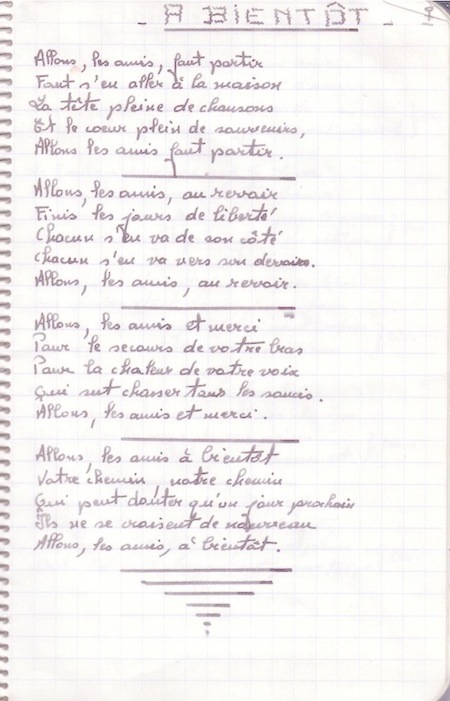 - A BIENTÔT -
Allons, les amis, faut partir
Faut s'en aller à la maison
La tête pleine de chansons
Et le coeur plein de souvenirs,
Allons les amis faut partir.
Allons, les amis, au revoir
Finis les jours de liberté
Chacun s'en va de son côté
Chacun s'en va vers son devoir.
Allons, les amis, au revoir.
Allons, les amis et merci
Pour le secours de votre bras
Pour la chaleur de votre voix
Qui sut chasser tous les soucis.
Allons, les amis et merci.
Allons, les amis à bientôt
Votre chemin, notre chemin
Qui peut douter qu'un jour prochain
Ils ne se croisent de nouveau
Allons, les amis, à bientôt.